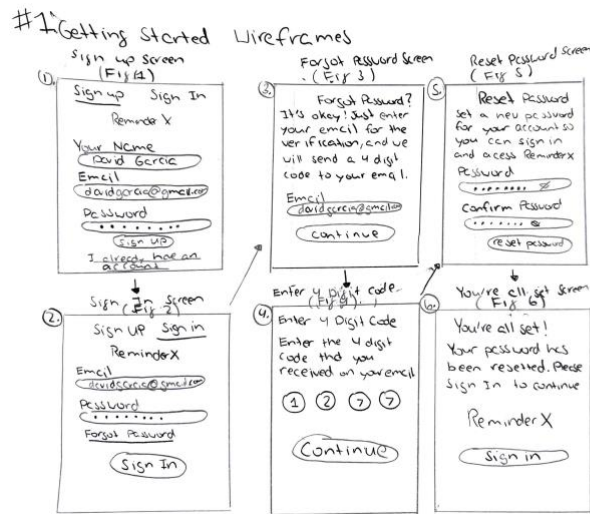 #1: Getting Started Wireframes
Sign up Screen
(Fig 1)
1.
Sign up Sign In
ReminderX
Your Name
David Garcia
Email
davidgarcia@gmail.com
Password
Sign up
I already have an
account
Sign In Screen
(Fig 2)
2.
Sign UP Sign in
ReminderX
Email
davidgarcia@gmail.com
Password
Forgot Password
Sign In
Forgot Password Screen
(Fig 3)
3.
Forgot Password?
It's okay! Just enter
your email for the
verification, and we
will send a 4 digit
code to your email.
Email
davidgarcia@gmail.com
Continue
Enter 4 Digit code.
(Fig 4)
4.
Enter 4 Digit Code
Enter the 4 digit
code that you
received on your email
1 2 7 7
Continue
Reset Password Screen
(Fig 5)
5.
Reset Password
Set a new password
for your account so
you can sign in
and acess ReminderX
Password
Confirm Password
reset password
You're all set Screen
(Fig 6)
6.
You're all set!
Your password has
been resetted. Please
Sign In to continue
ReminderX
Sign in